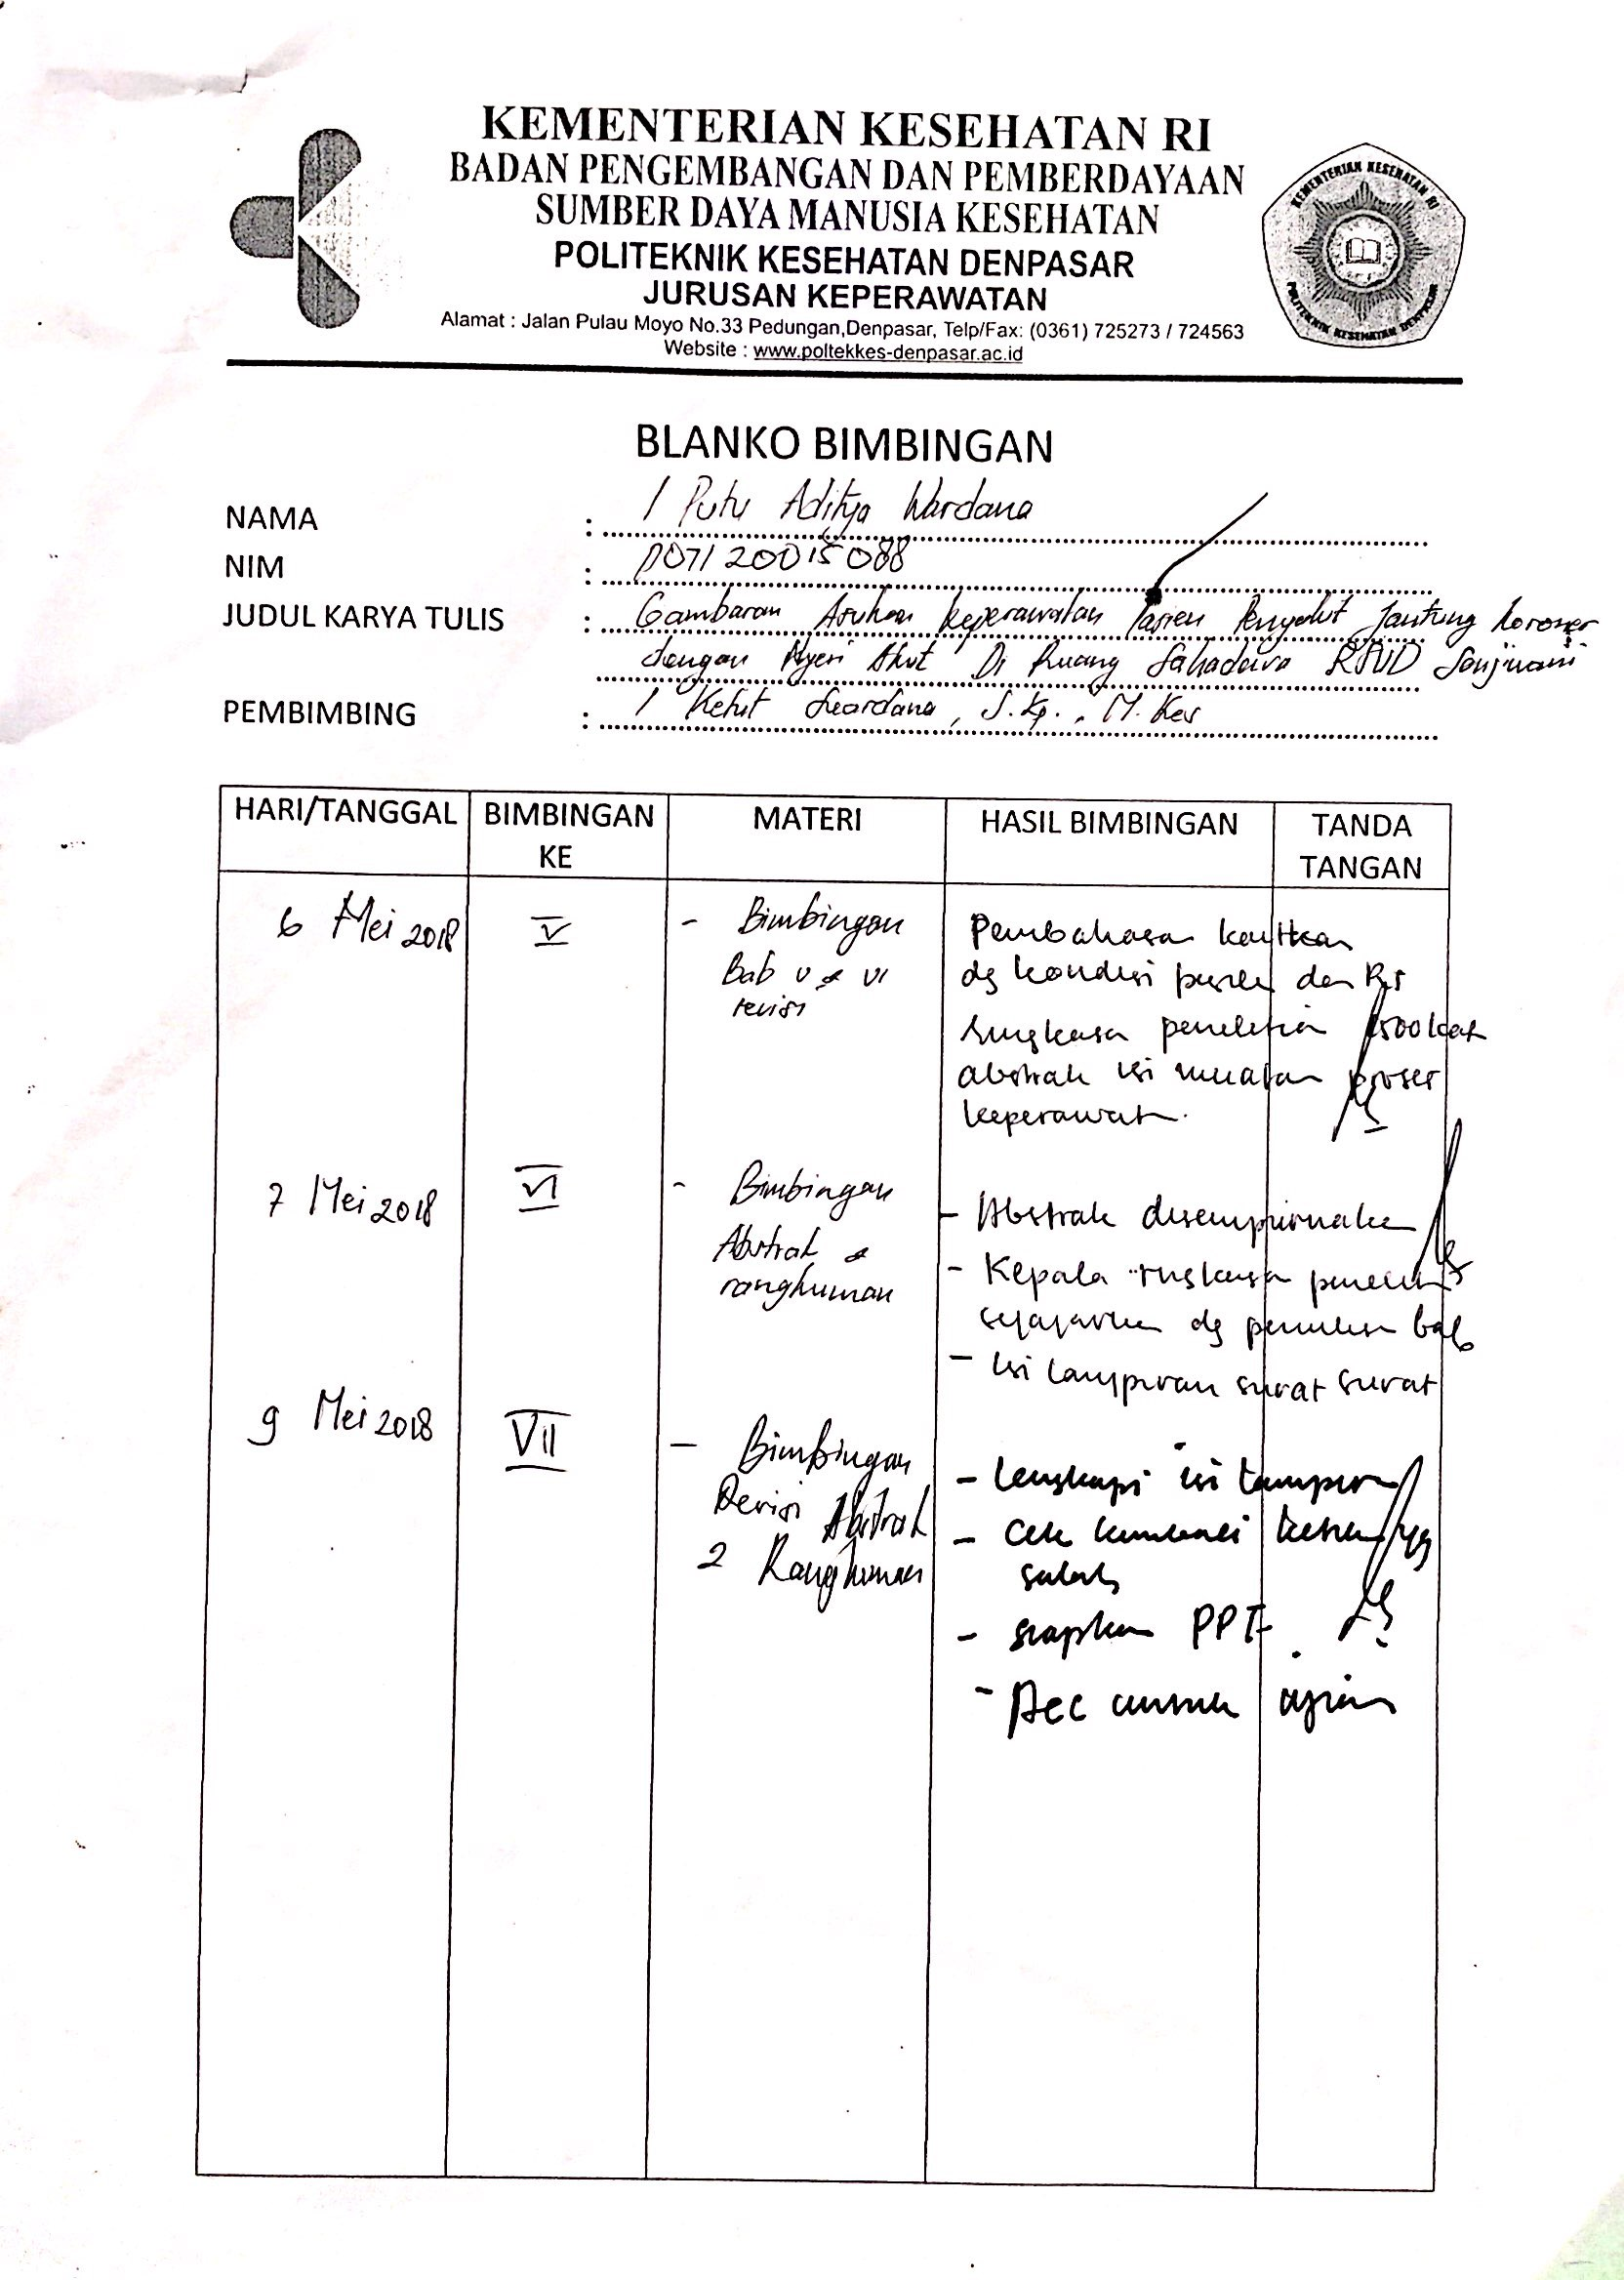 KEMENTERIAN KESEHATAN RI
BADAN PENGEMBANGAN DAN PEMBERDAYAAN
SUMBER DAYA MANUSIA KESEHATAN
POLITEKNIK KESEHATAN DENPASAR
JURUSAN KEPERAWATAN
Alamat : Jalan Pulau Moyo No.33 Pedungan,Denpasar, Telp/Fax: (0361) 725273 / 724563
Website : www.poltekkes-denpasar.ac.id
KEMENTERIAN KESEHATAN RI
POLITEKNIK KESEHATAN DENPASAR
BLANKO BIMBINGAN
NAMA : I Putu Aditya Wardana
NIM : P07120015088
JUDUL KARYA TULIS : Gambaran Asuhan Keperawatan Pasien Penyakit Jantung Koroner
dengan Nyeri Akut Di Ruang Sahadewa RSUD Sanjiwani
PEMBIMBING : I Ketut Suardana, S.Kp., M.Kes
HARI/TANGGAL BIMBINGAN KE MATERI HASIL BIMBINGAN TANDA TANGAN
6 Mei 2018 V - Bimbingan
Bab V & VI
revisi
Pembahasan kaitkan
dg kondisi pasien dan RS
Ringkasan penelitian 1500 kat
abstrak isi muatan proses
keperawatan.
7 Mei 2018 VI - Bimbingan
Abstrak &
rangkuman
- Abstrak disempurnakan
- Kepala ringkasan penelitian
sejajarkan dg penulisan bab
- isi lampiran surat surat
9 Mei 2018 VII - Bimbingan
Revisi Abstrak
2 Rangkuman
- lengkapi isi lampiran
- Cek kembali ketikan yg
salah
- siapkan PPT.
- Acc untuk ujian